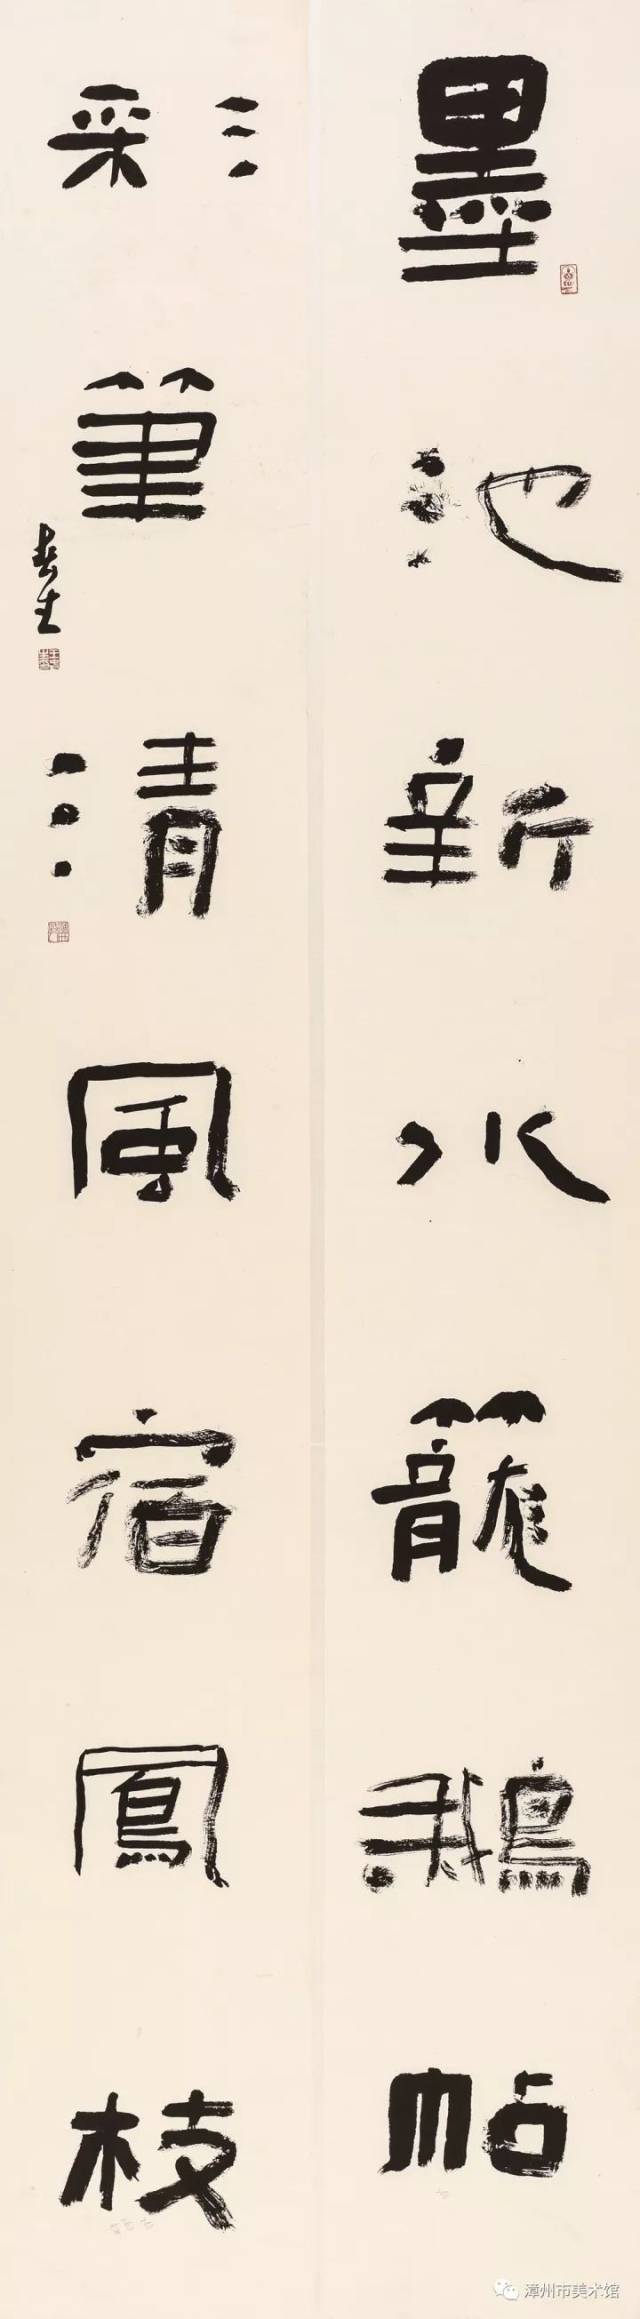 墨池新水籠鵝帖
彩筆清風宿鳳枝
漳州市美术馆